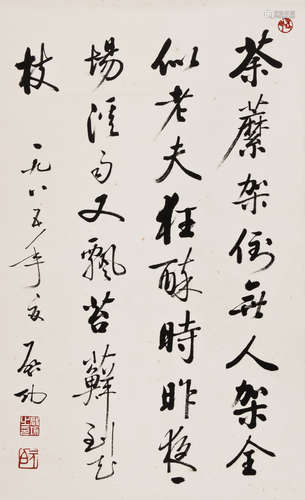 荼蘼架倒無人架全
似老夫狂醉時昨夜一
場又飄苔蘚到花
枝
一九八五年夏 啟功